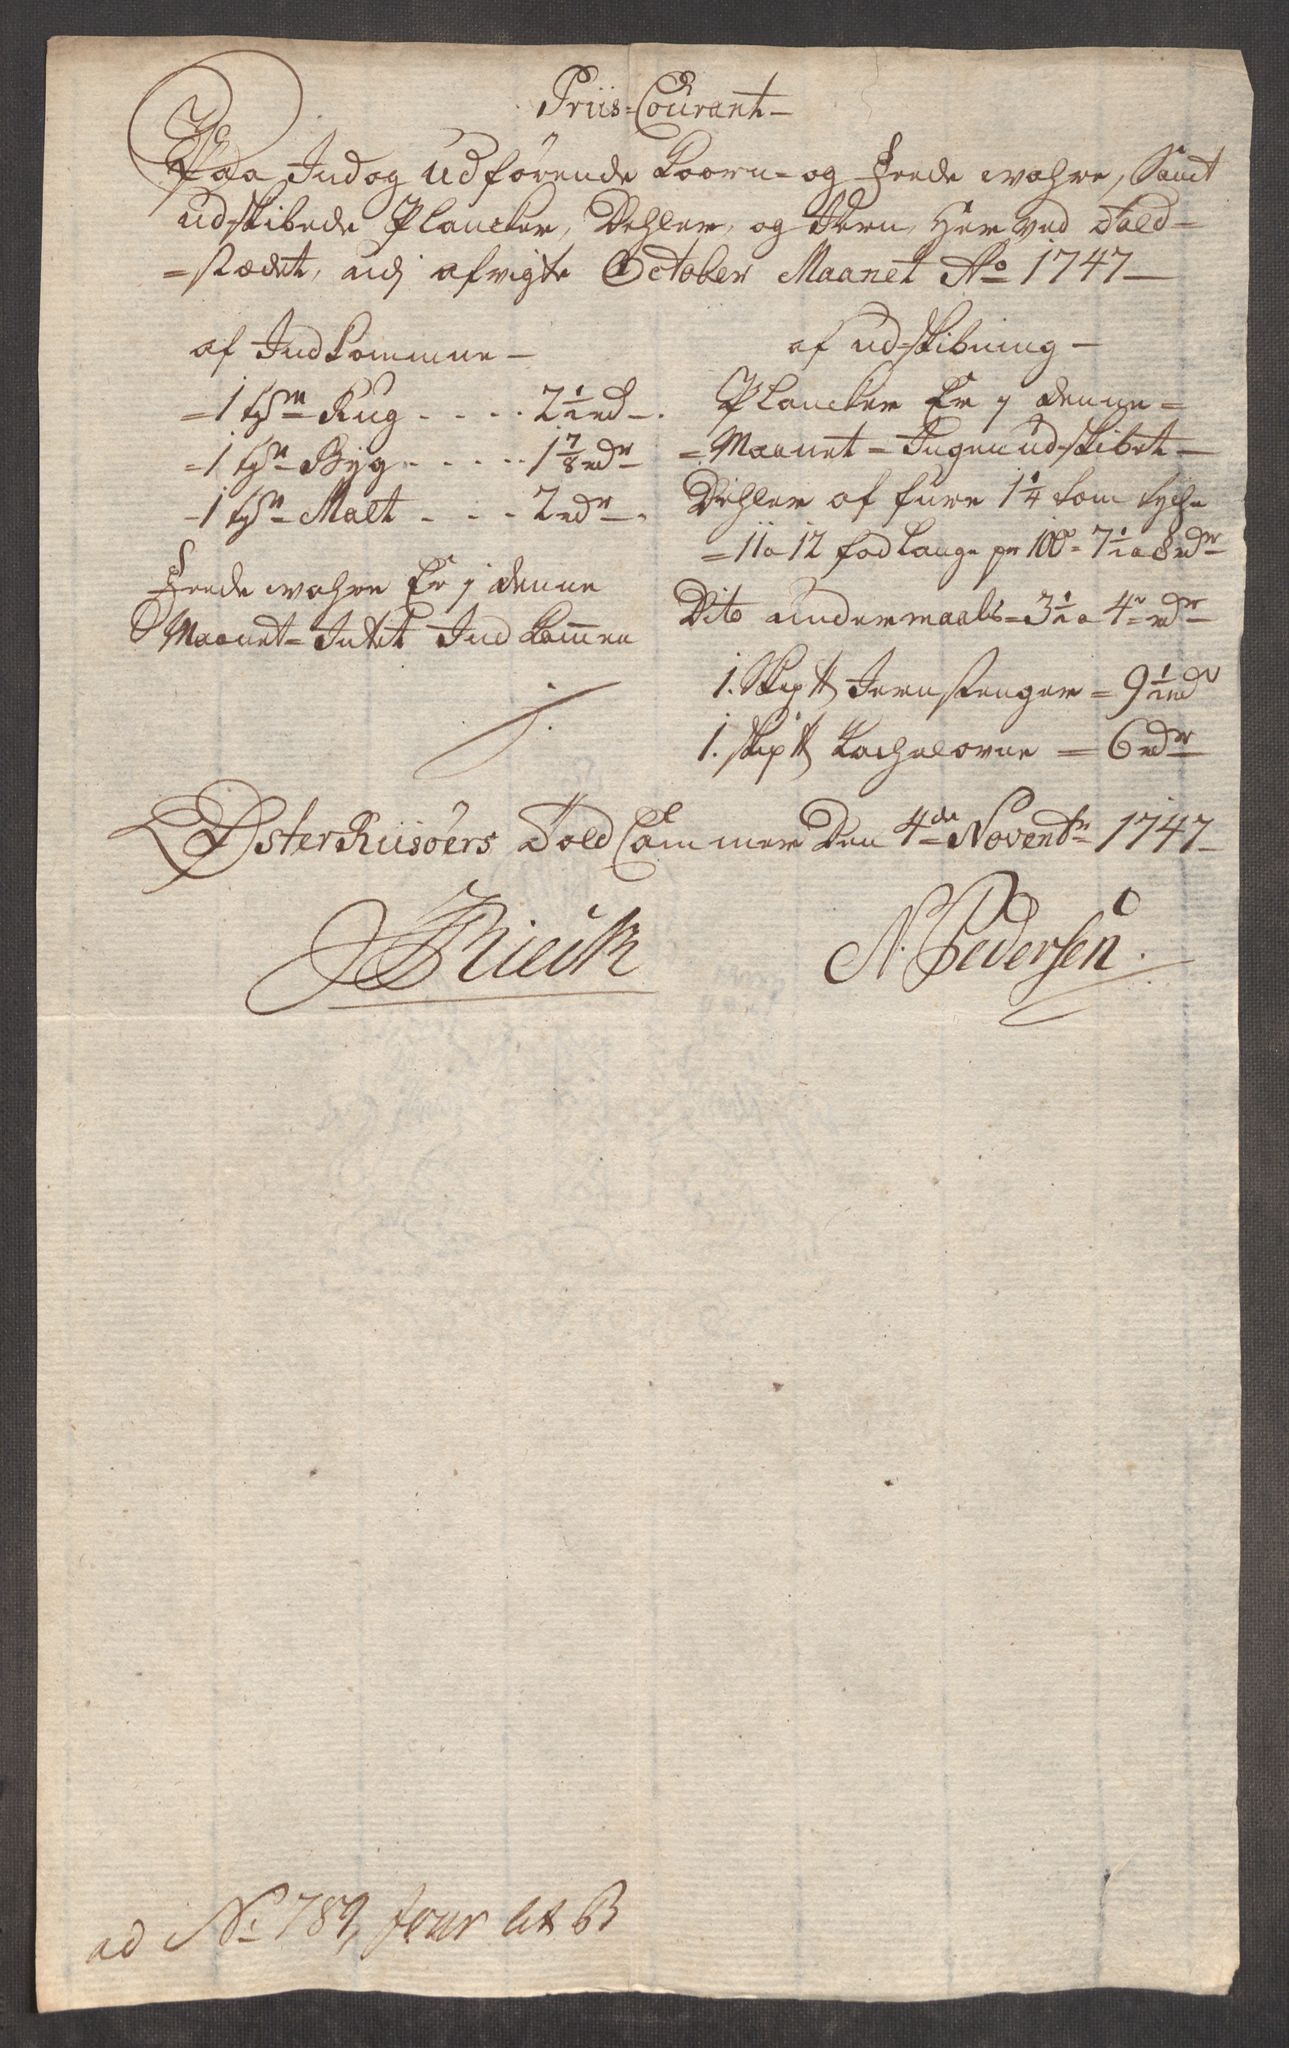 Priis-Courant-
Paa Ind og udførende Koorn- og Feede wahre, Samt
udskibede Plancker, Dehler, og Jern, Her ved Told-
=stædet, udj afvigte October Maanet Ao 1747-
af Indkomne-
=1 tdr Rug - - - - 2 1/2 rd-
=1 tdr Byg - - - - - 1 7/8 rdr
-1 tdr Malt - - - - 2 rdr-
Feede wahre Er j denne
Maanet= Intet Ind kommen
af udskibning-
Plancker Er j denne=
=Maanet= Ingen udskibet-
Dehler af furu 1 1/4 tom tyche
=11 a 12 fod lange pr 100= 7 1/2 a 8 rdr
Dito undermaals= 3 1/2 a 4 rdr
1. Skip℔ Jern stenger= 9 1/2 rdr
1. skip℔ Kachelovne = 6 rdr
ØsterRiisøers Told Cammer Den 4de Novembr 1747-
Rieck
N. Pedersen.
ad No 789, Jour lit B